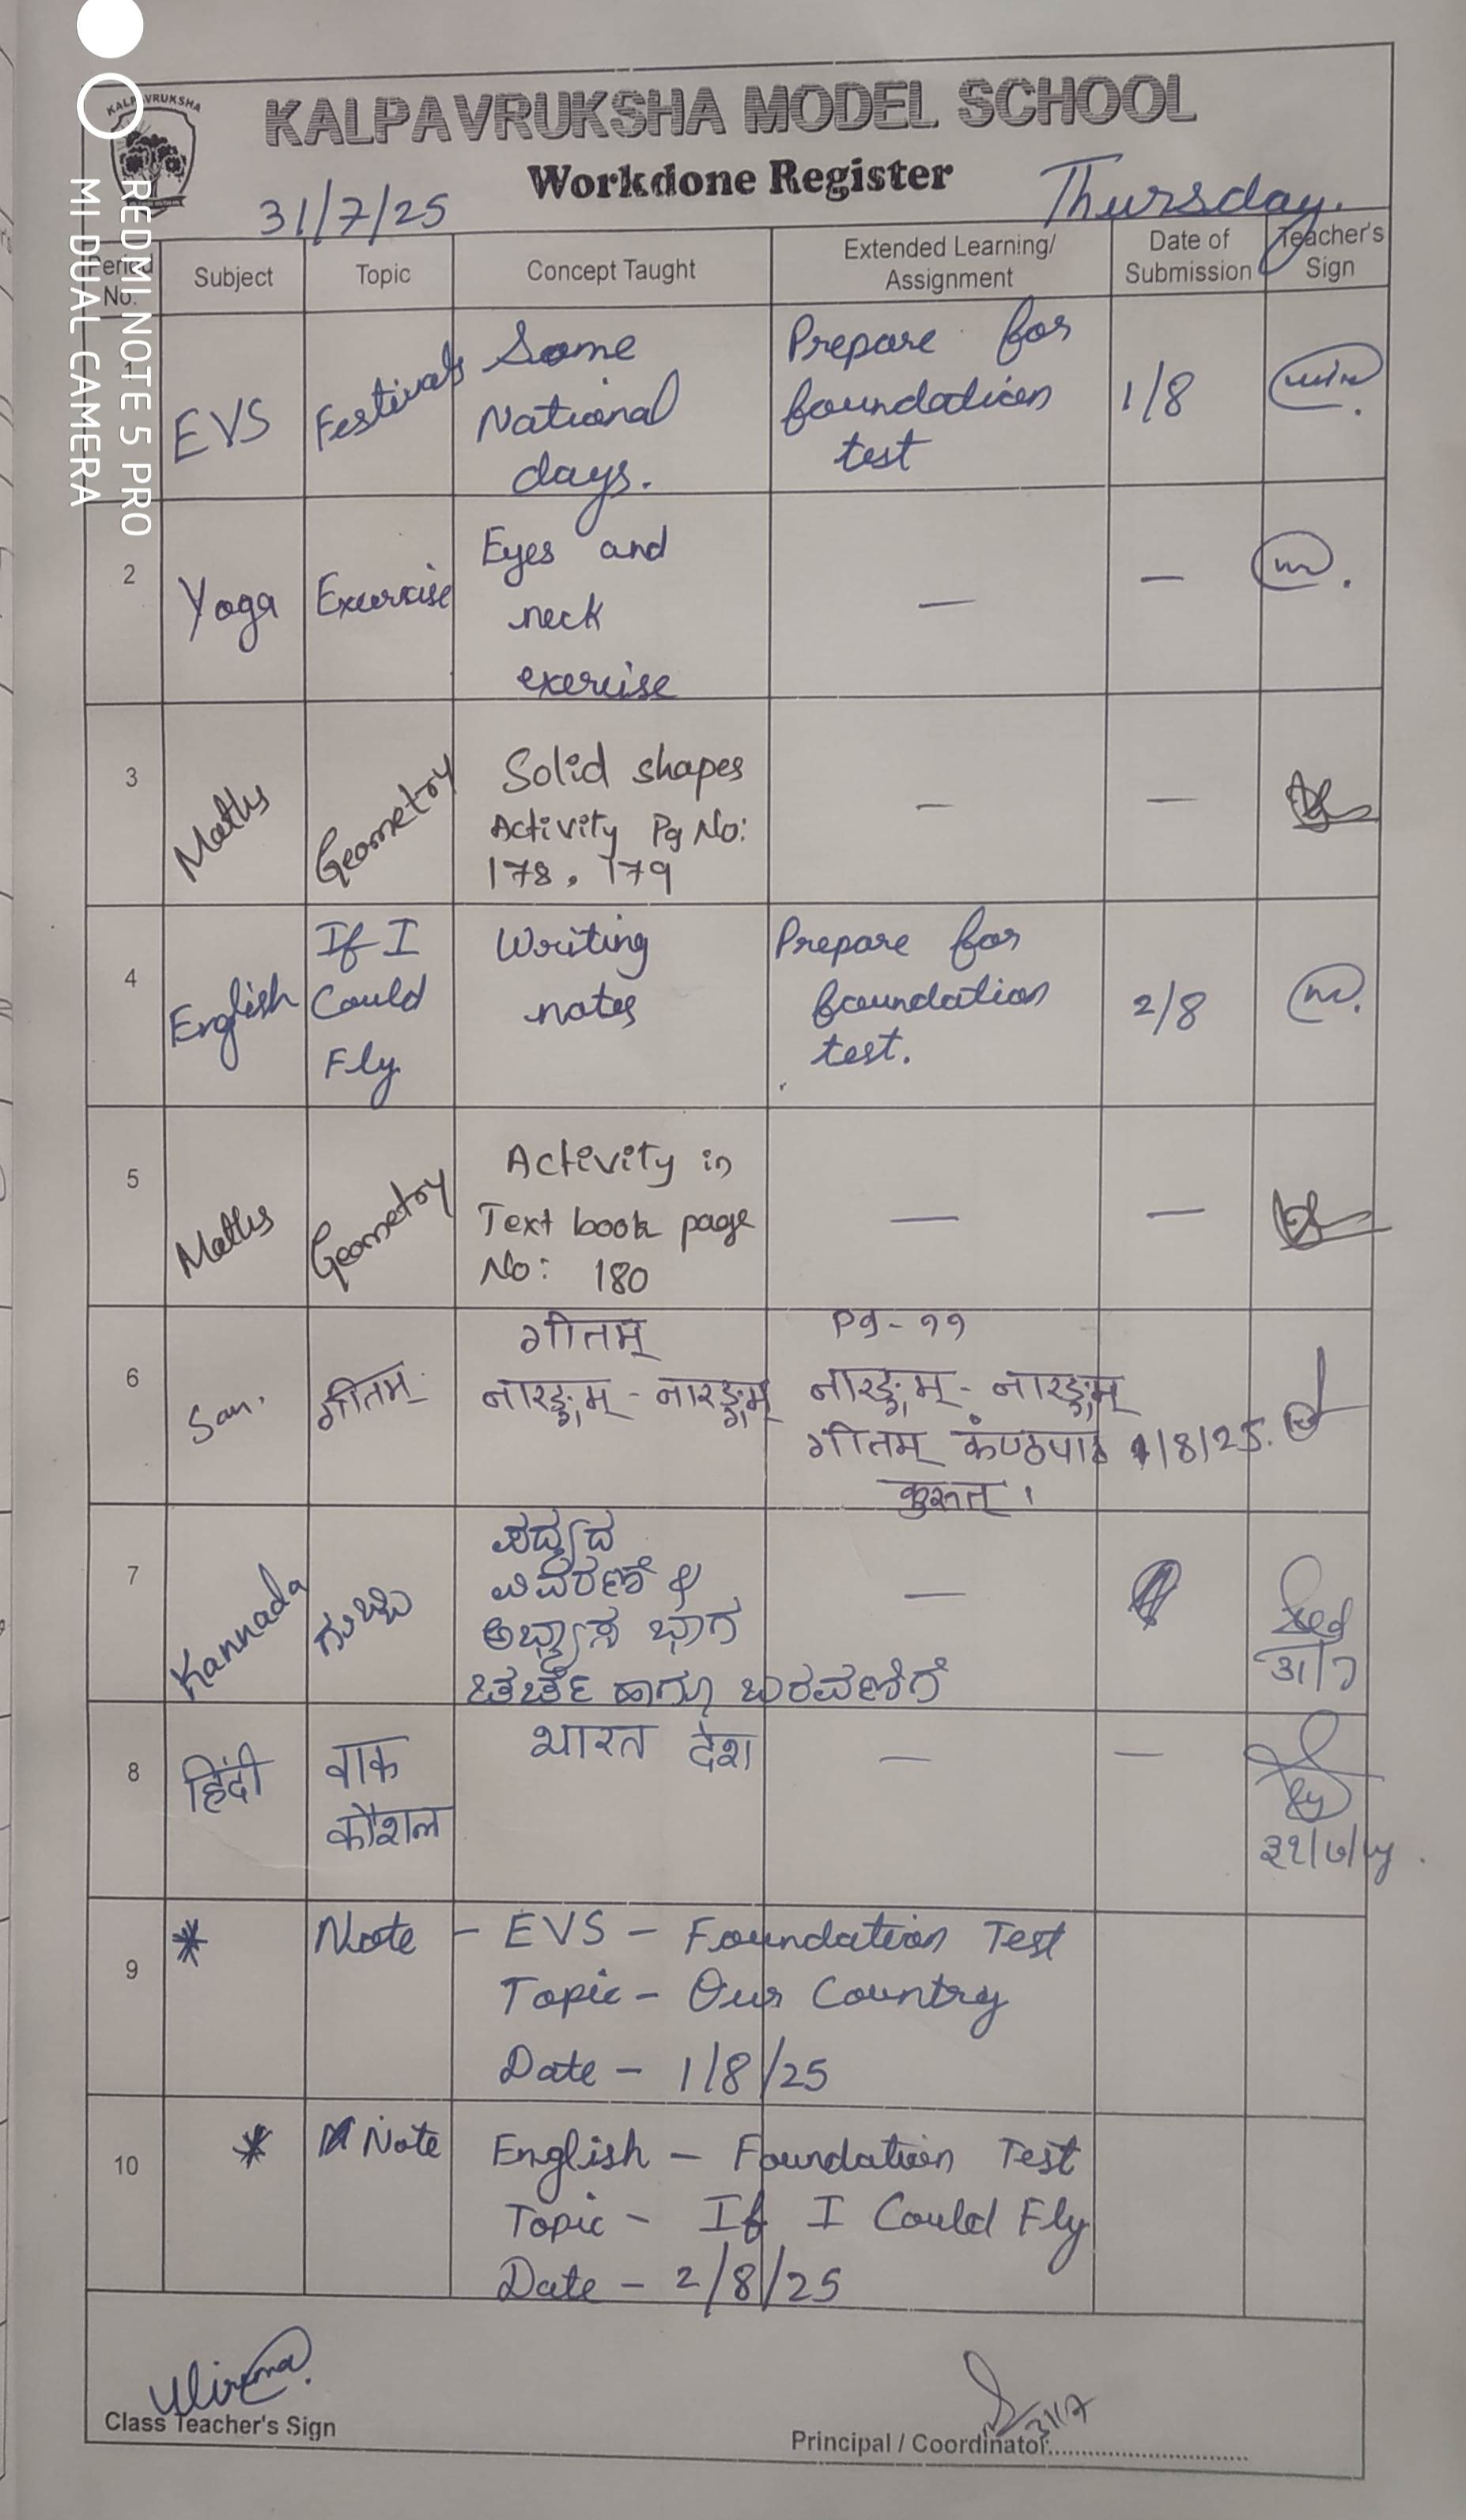 KALPAVRUKSHA
KALPAVRUKSHA MODEL SCHOOL
Workdone Register
31/7/25 Thursday.
Period No. Subject Topic Concept Taught Extended Learning/ Assignment Date of Submission Teacher's Sign
EVS Festivals Some Prepare for 1/8
National foundation
days. test
2 Yoga Exercise Eyes and — —
neck
exercise
3 Maths Geometry Solid shapes — —
Activity Pg No:
178, 179
4 English If I Writing Prepare for 2/8
Could notes foundation
Fly test.
5 Maths Geometry Activity in — —
Text book page
No: 180
6 San. गीतम् गीतम् Pg - ११
नारङ्गम् - नारङ्गम् नारङ्गम् - नारङ्गम्
गीतम् कंण्ठपाठ 1/8/25.
कुरुत् ।
7 Kannada ಗುಬ್ಬಿ ಪದ್ಯದ —
ವಿವರಣೆ &
ಅಭ್ಯಾಸ ಭಾಗ
ಚರ್ಚೆ ಹಾಗೂ ಬರವಣಿಗೆ
31/7
8 हिंदी वाक भारत देश — —
कौशल
३१/७/२५
9 * Note - EVS - Foundation Test
Topic - Our Country
Date - 1/8/25
10 * Note English - Foundation Test
Topic - If I Could Fly
Date - 2/8/25
31/7
Class Teacher's Sign
Principal / Coordinator:
REDMI NOTE 5 PRO
MI DUAL CAMERA